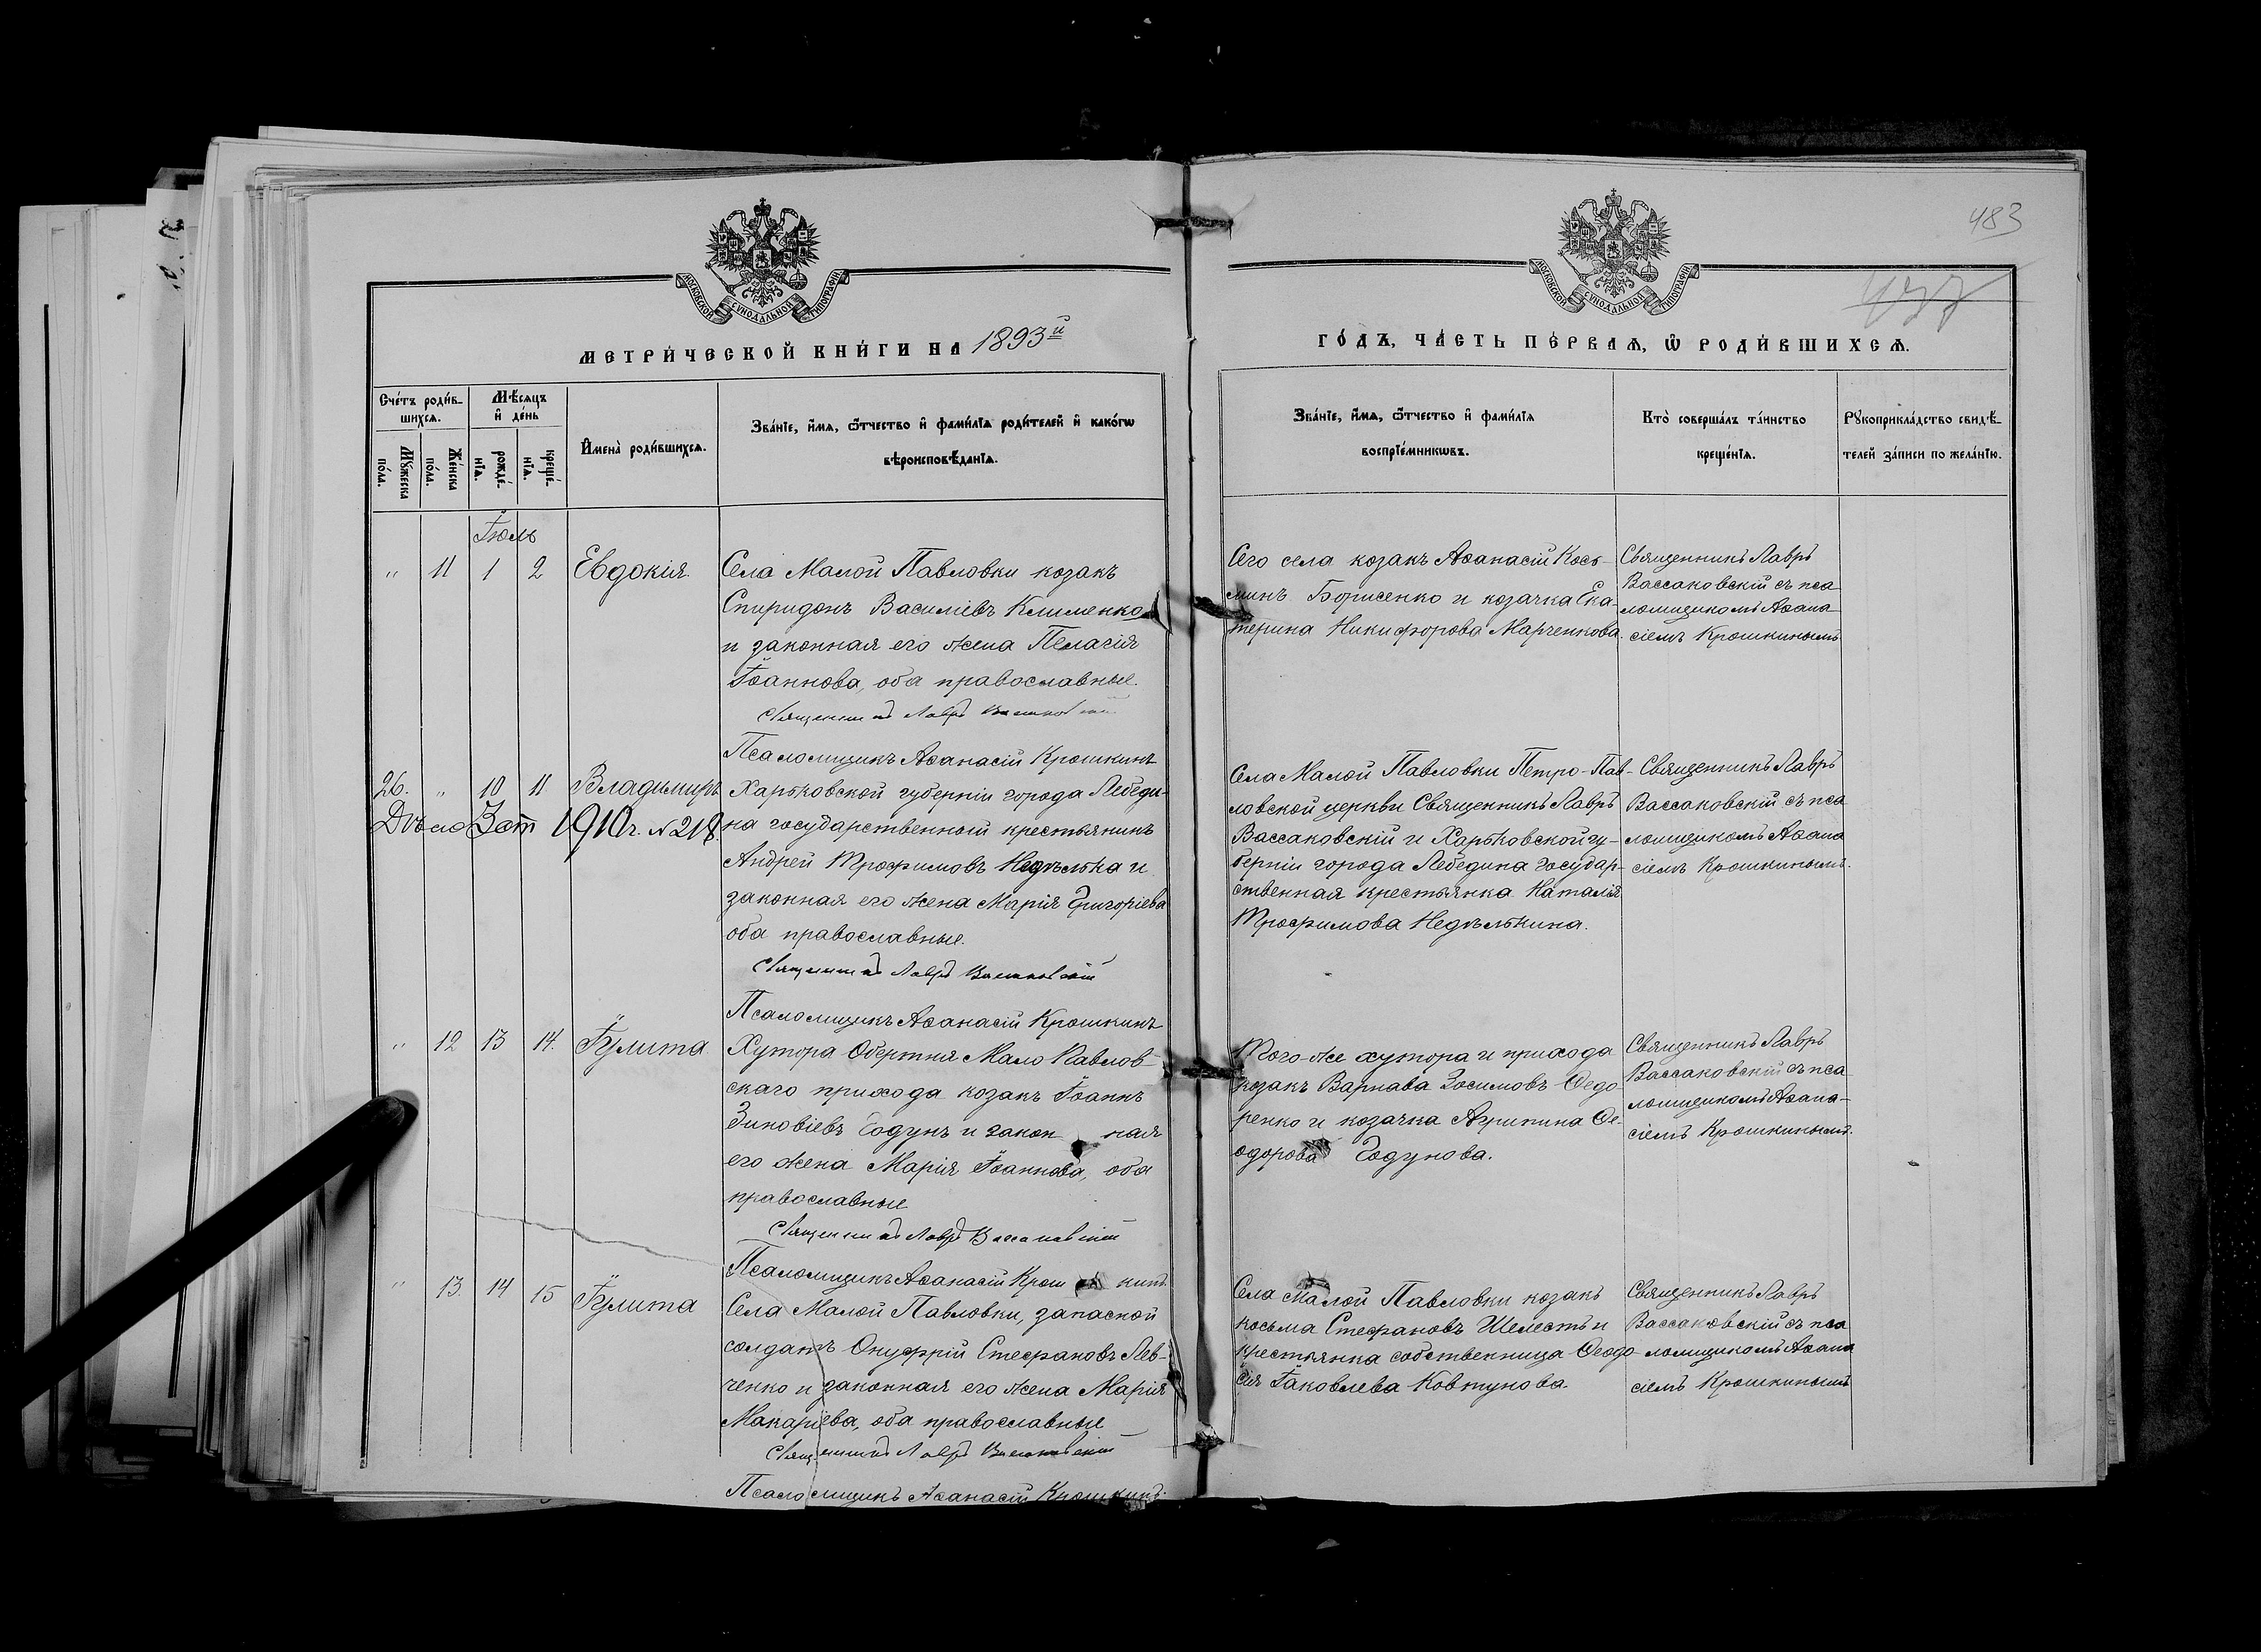 МОСКОВСКОЙ СѴНОДАЛЬНОЙ ТИПОГРАФІИ
МЕТРИ́ЧЕСКОЙ КНИ́ГИ НА 1893й
Сче́тъ роди́в-
шихся.
Мѣ́сяцъ
и҆ де́нь
Мꙋ́жеска
по́ла.
Же́нска
по́ла.
рожде́-
нїѧ.
креще́-
нїѧ.
И҆мена̀ роди́вшихсѧ.
Зва́нїе, и҆́мѧ, ѻ҆́тчество и҆ фами́лїѧ роди́телей и҆ како́гѡ
вѣроисповѣ́данїѧ.
Іюль
" 11 1 2 Евдокія.
Села Малой Павловки козакъ
Спиридонъ Василіевъ Клименко
и законная его жена Пелагія
Іоаннова, оба православные.
Священникъ Лавръ Вассаковскій
Псаломщикъ Аѳанасій Крошкинъ
26. " 10 11 Владимиръ
Дѣло Зет 1910 г. № 218.
Харьковской губерніи города Лебеди-
на государственный крестьянинъ
Андрей Трофимовъ Недѣлька и
законная его жена Марія Григоріева
оба православные.
Священникъ Лавръ Вассаковскій
Псаломщикъ Аѳанасій Крошкинъ
" 12 13 14. Іулита
Хутора Обертня Мало Павлов-
скаго прихода козакъ Іоаннъ
Зиновіевъ Годунъ и закон ная
его жена Марія Іоаннова, оба
православные
Священникъ Лавръ Вассаковскій
Псаломщикъ Аѳанасій Крош кинъ.
" 13. 14 15 Іулита
Села Малой Павловки, запасной
солдатъ Онуфрій Стефановъ Лев-
ченко и законная его жена Марія
Макаріева, оба православные
Священникъ Лавръ Вассаковскій
Псаломщикъ Аѳанасій Крошкинъ.
483
МОСКОВСКОЙ СѴНОДАЛЬНОЙ ТИПОГРАФІИ
ГО́ДЪ, ЧА́СТЬ ПЕ́РВАѦ, Ѡ҆ РОДИ́ВШИХСѦ.
Зва́нїе, и҆́мѧ, ѻ҆́тчество и҆ фами́лїѧ
воспрїе́мникѡвъ.
Кто̀ соверша́лъ та́инство
креще́нїѧ.
Рꙋкоприкла́дство свидѣ́-
телей за́писи по жела́нїю.
Сего села козакъ Аѳанасій Кось-
минъ Борисенко и козачка Ека-
терина Никифорова Марченкова.
Священникъ Лавръ
Вассаковскій съ пса
ломщикомъ Аѳана-
сіемъ Крошкинымъ
Села Малой Павловки Петро-Пав-
ловской церкви Священникъ Лавръ
Вассаковскій и Харьковской гу-
берніи города Лебедина государ-
ственная крестьянка Наталія
Трофимова Недѣлькина.
Священникъ Лавръ
Вассаковскій съ пса
ломщикомъ Аѳана
сіемъ Крошкинымъ.
Того-же хутора и прихода
козакъ Варнава Зосимовъ Ѳедо
ренко и козачка Агрипина Ѳе-
одорова Годунова.
Священникъ Лавръ
Вассаковскій съ пса
ломщикомъ Аѳана-
сіемъ Крошкинымъ.
Села Малой Павловки козакъ
Косьма Стефановъ Шелестъ и
крестьянка собственница Ѳеодо
сія Іаковлева Ковтунова.
Священникъ Лавръ
Вассаковскій съ пса
ломщикомъ Аѳана
сіемъ Крошкинымъ